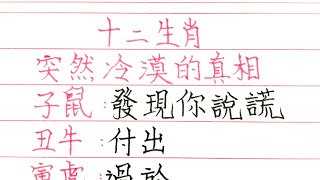 十二生肖
突然冷漠的真相
子鼠：發現你說謊
丑牛：付出
寅虎：過於